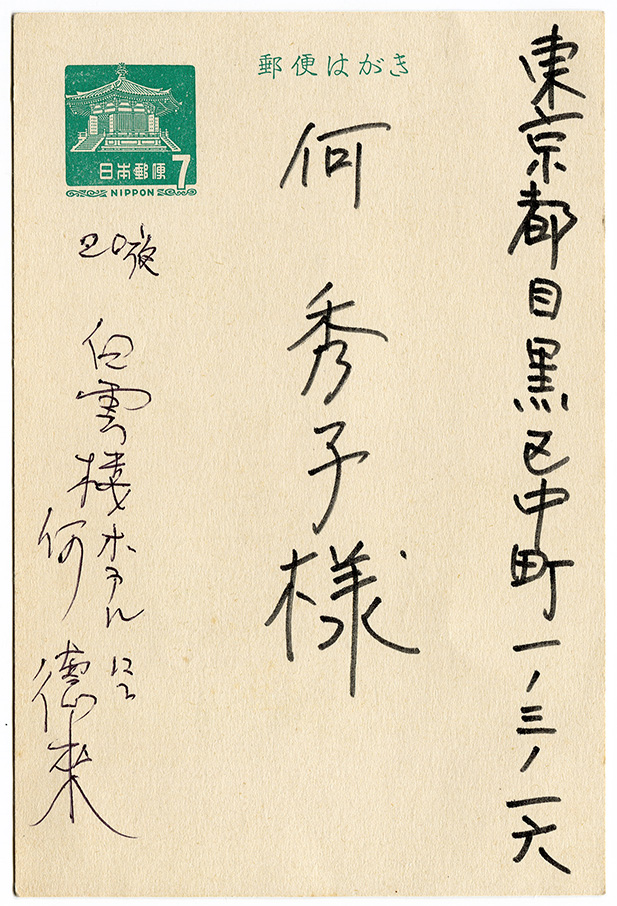 東京都目黒区中町一ノ三ノ一六
郵便はがき
何 秀子様
日本郵便 7
NIPPON
20夜
白雲楼ホテルにて
何 德来